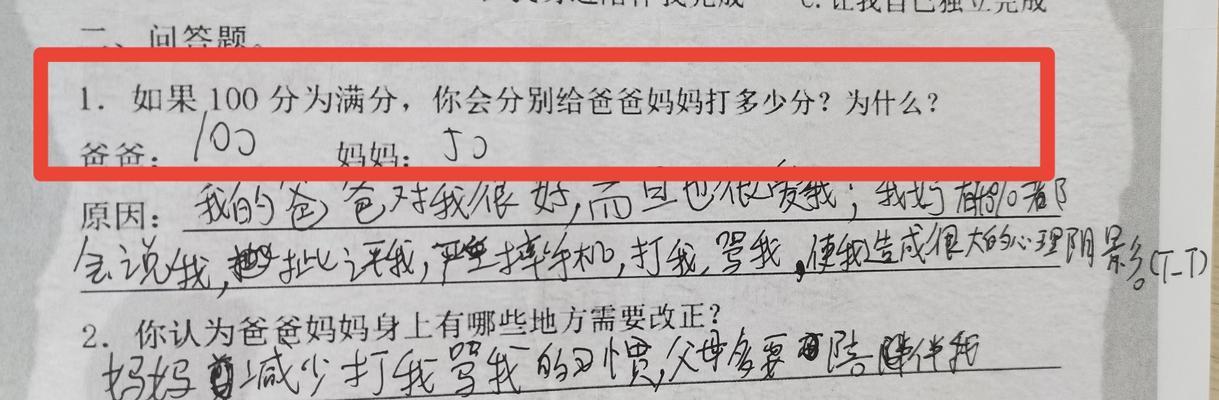 完成 C. 让我自己独立完成
二、问答题。
1. 如果 100 分为满分，你会分别给爸爸妈妈打多少分？为什么？
爸爸： 100 妈妈： 50
原因： 我的爸爸对我很好，而且也很爱我；我妈
会说我，批评我，摔手机，打我，骂我，使我造成很大的心理阴影。(T_T)
2. 你认为爸爸妈妈身上有哪些地方需要改正？
妈妈减少打我骂我的习惯，父母多要陪伴我